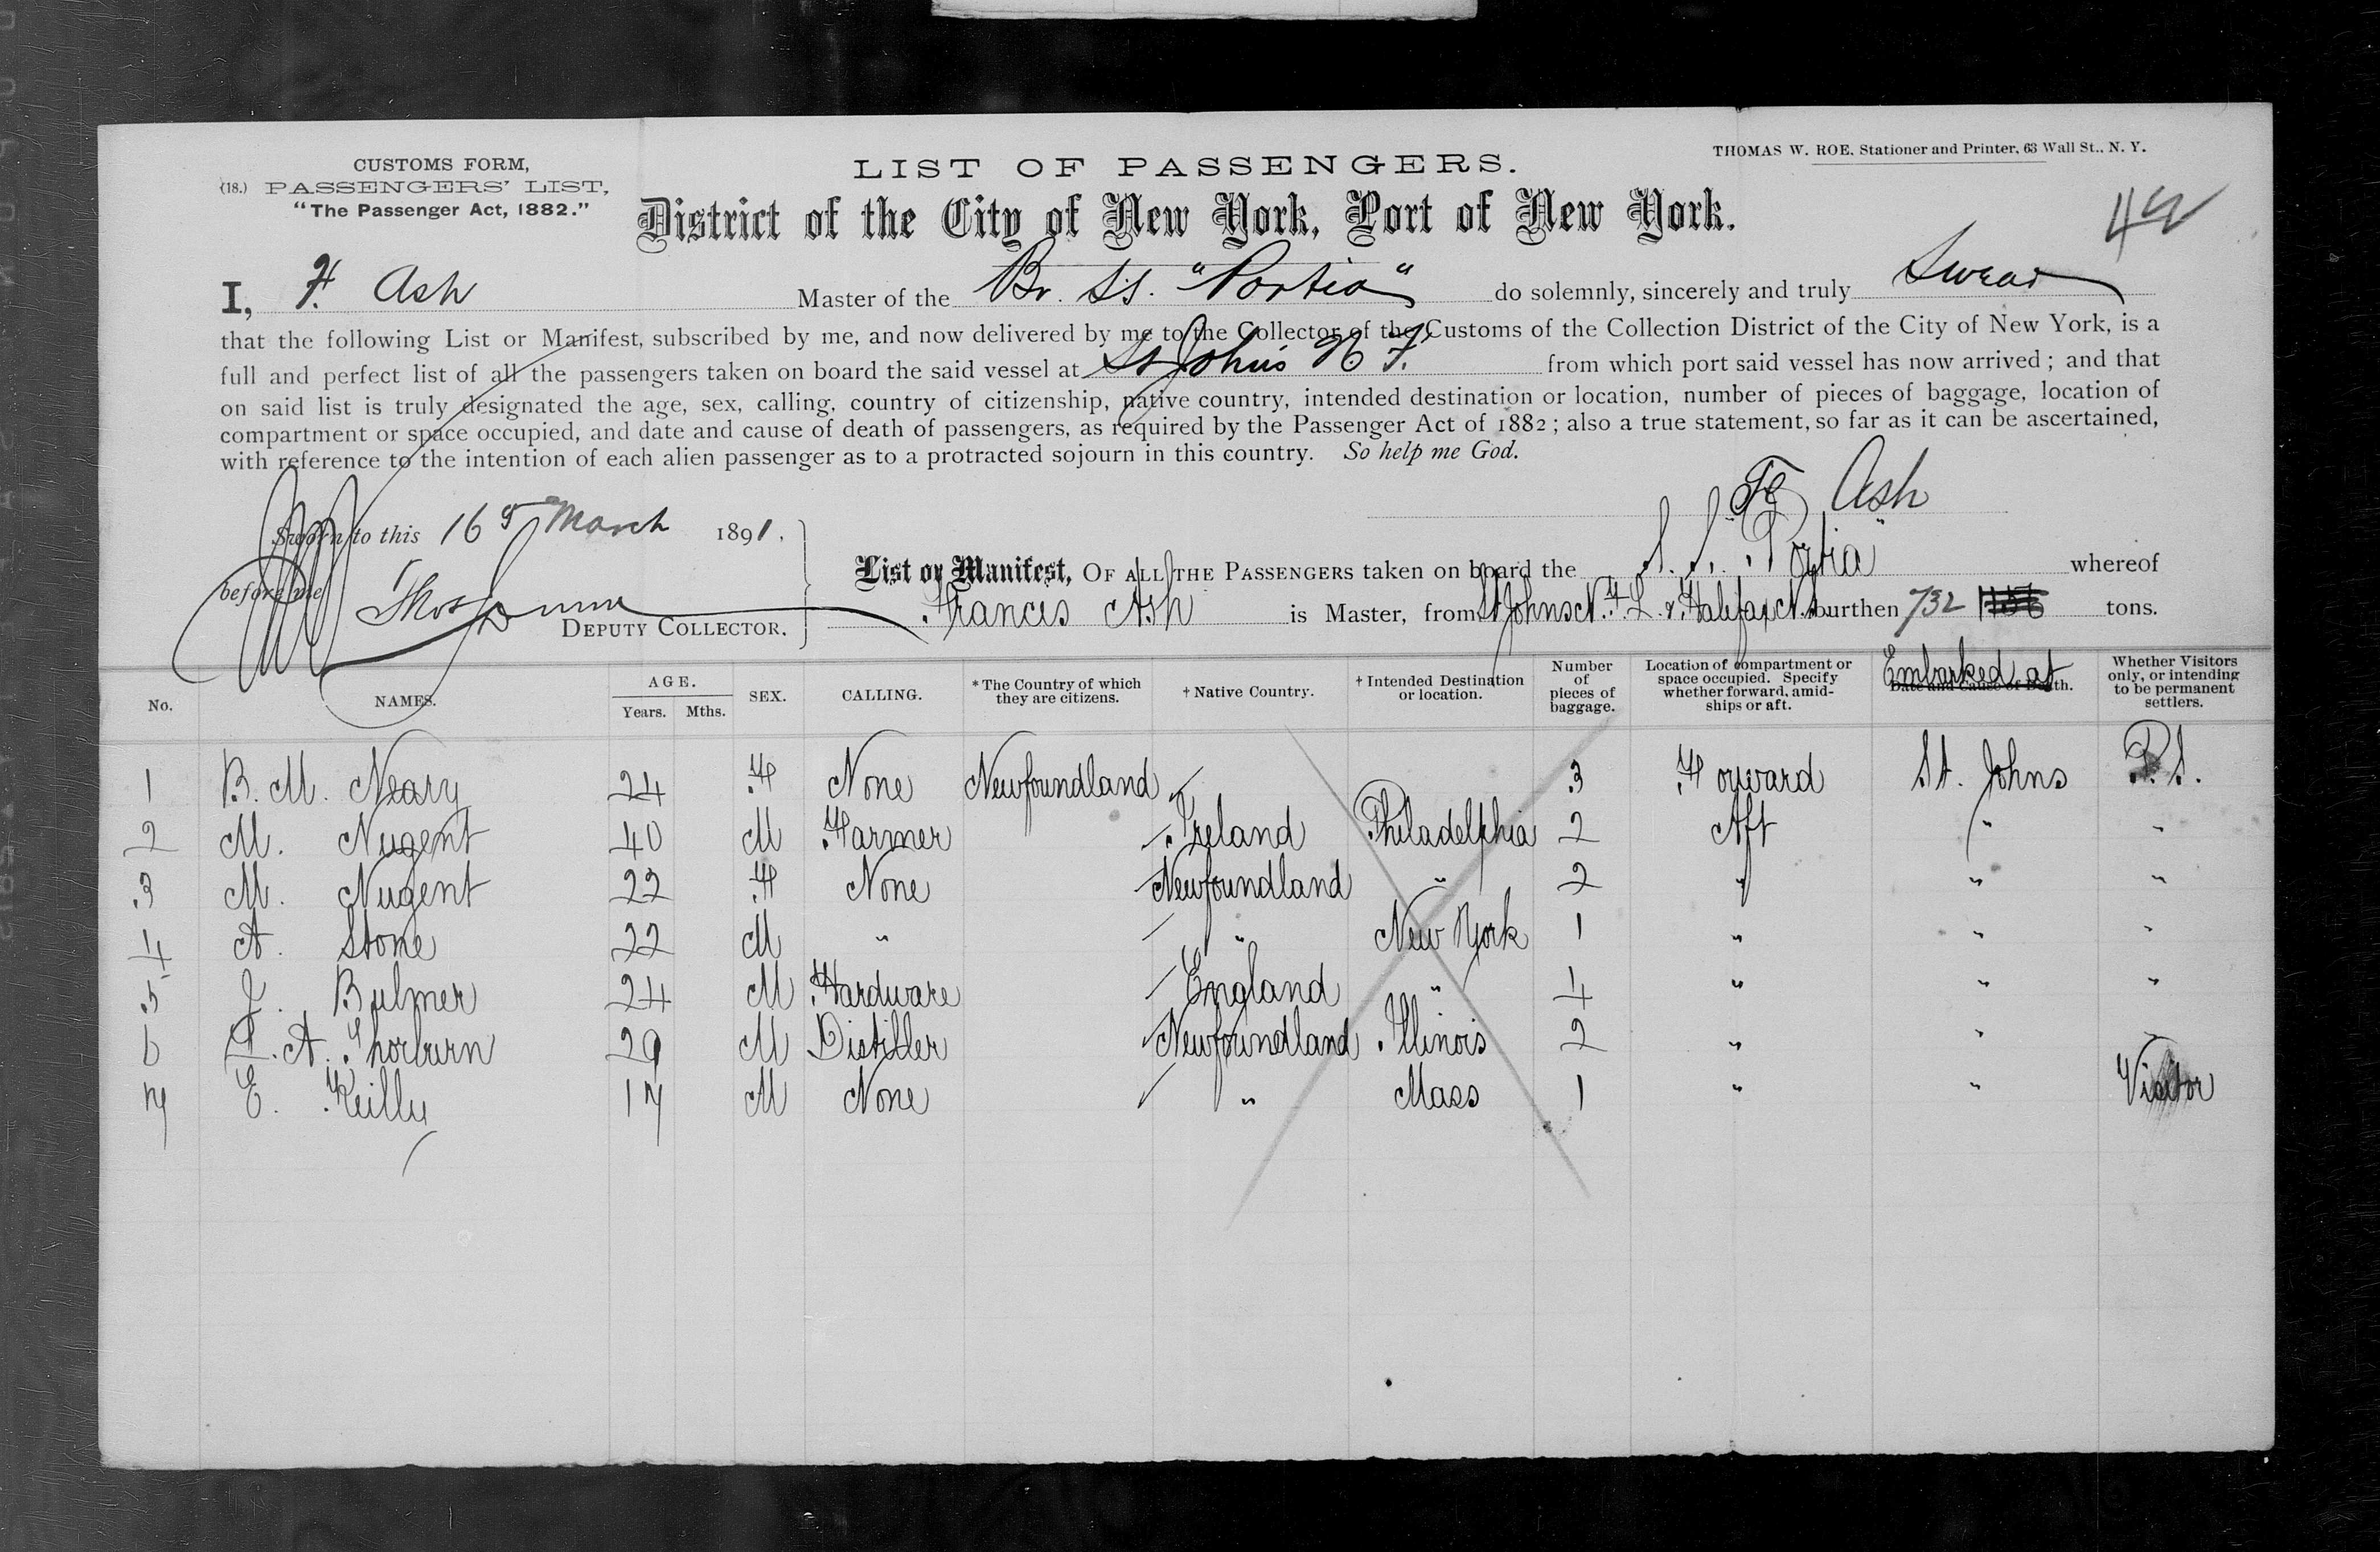 CUSTOMS FORM,
(18.) PASSENGERS' LIST,
"The Passenger Act, 1882."
LIST OF PASSENGERS.
THOMAS W. ROE, Stationer and Printer, 63 Wall St., N. Y.
District of the City of New York, Port of New York.
I, F. Ash Master of the Br. SS. "Portia" do solemnly, sincerely and truly Swear
that the following List or Manifest, subscribed by me, and now delivered by me to the Collector of the Customs of the Collection District of the City of New York, is a
full and perfect list of all the passengers taken on board the said vessel at St Johns N. F. from which port said vessel has now arrived; and that
on said list is truly designated the age, sex, calling, country of citizenship, native country, intended destination or location, number of pieces of baggage, location of
compartment or space occupied, and date and cause of death of passengers, as required by the Passenger Act of 1882; also a true statement, so far as it can be ascertained,
with reference to the intention of each alien passenger as to a protracted sojourn in this country. So help me God.
Ash
Sworn to this 16 March 1891.
before me
DEPUTY COLLECTOR.
List or Manifest, OF ALL THE PASSENGERS taken on board the S. S. "Portia" whereof
Francis Ash is Master, from St Johns N. F. L. & Halifax N. S. burthen 732 tons.
No. NAMES. AGE. Years. Mths. SEX. CALLING. *The Country of which they are citizens. †Native Country. †Intended Destination or location. Number of pieces of baggage. Location of compartment or space occupied. Specify whether forward, amidships or aft. Embarked at Date and Cause of Death. Whether Visitors only, or intending to be permanent settlers.
1 B. M. Neary 24 F None Newfoundland 3 Forward St. Johns P. S.
2 M. Nugent 40 M Farmer Ireland Philadelphia 2 Aft " "
3 M. Nugent 22 F None Newfoundland " 2 " " "
4 A. Stone 22 M " " New York 1 " " "
5 J. Bulmer 24 M Hardware England " 4 " " "
6 A. Thorburn 29 M Distiller Newfoundland Illinois 2 " "
7 E. Keilly 17 M None " Mass 1 " " Visitor